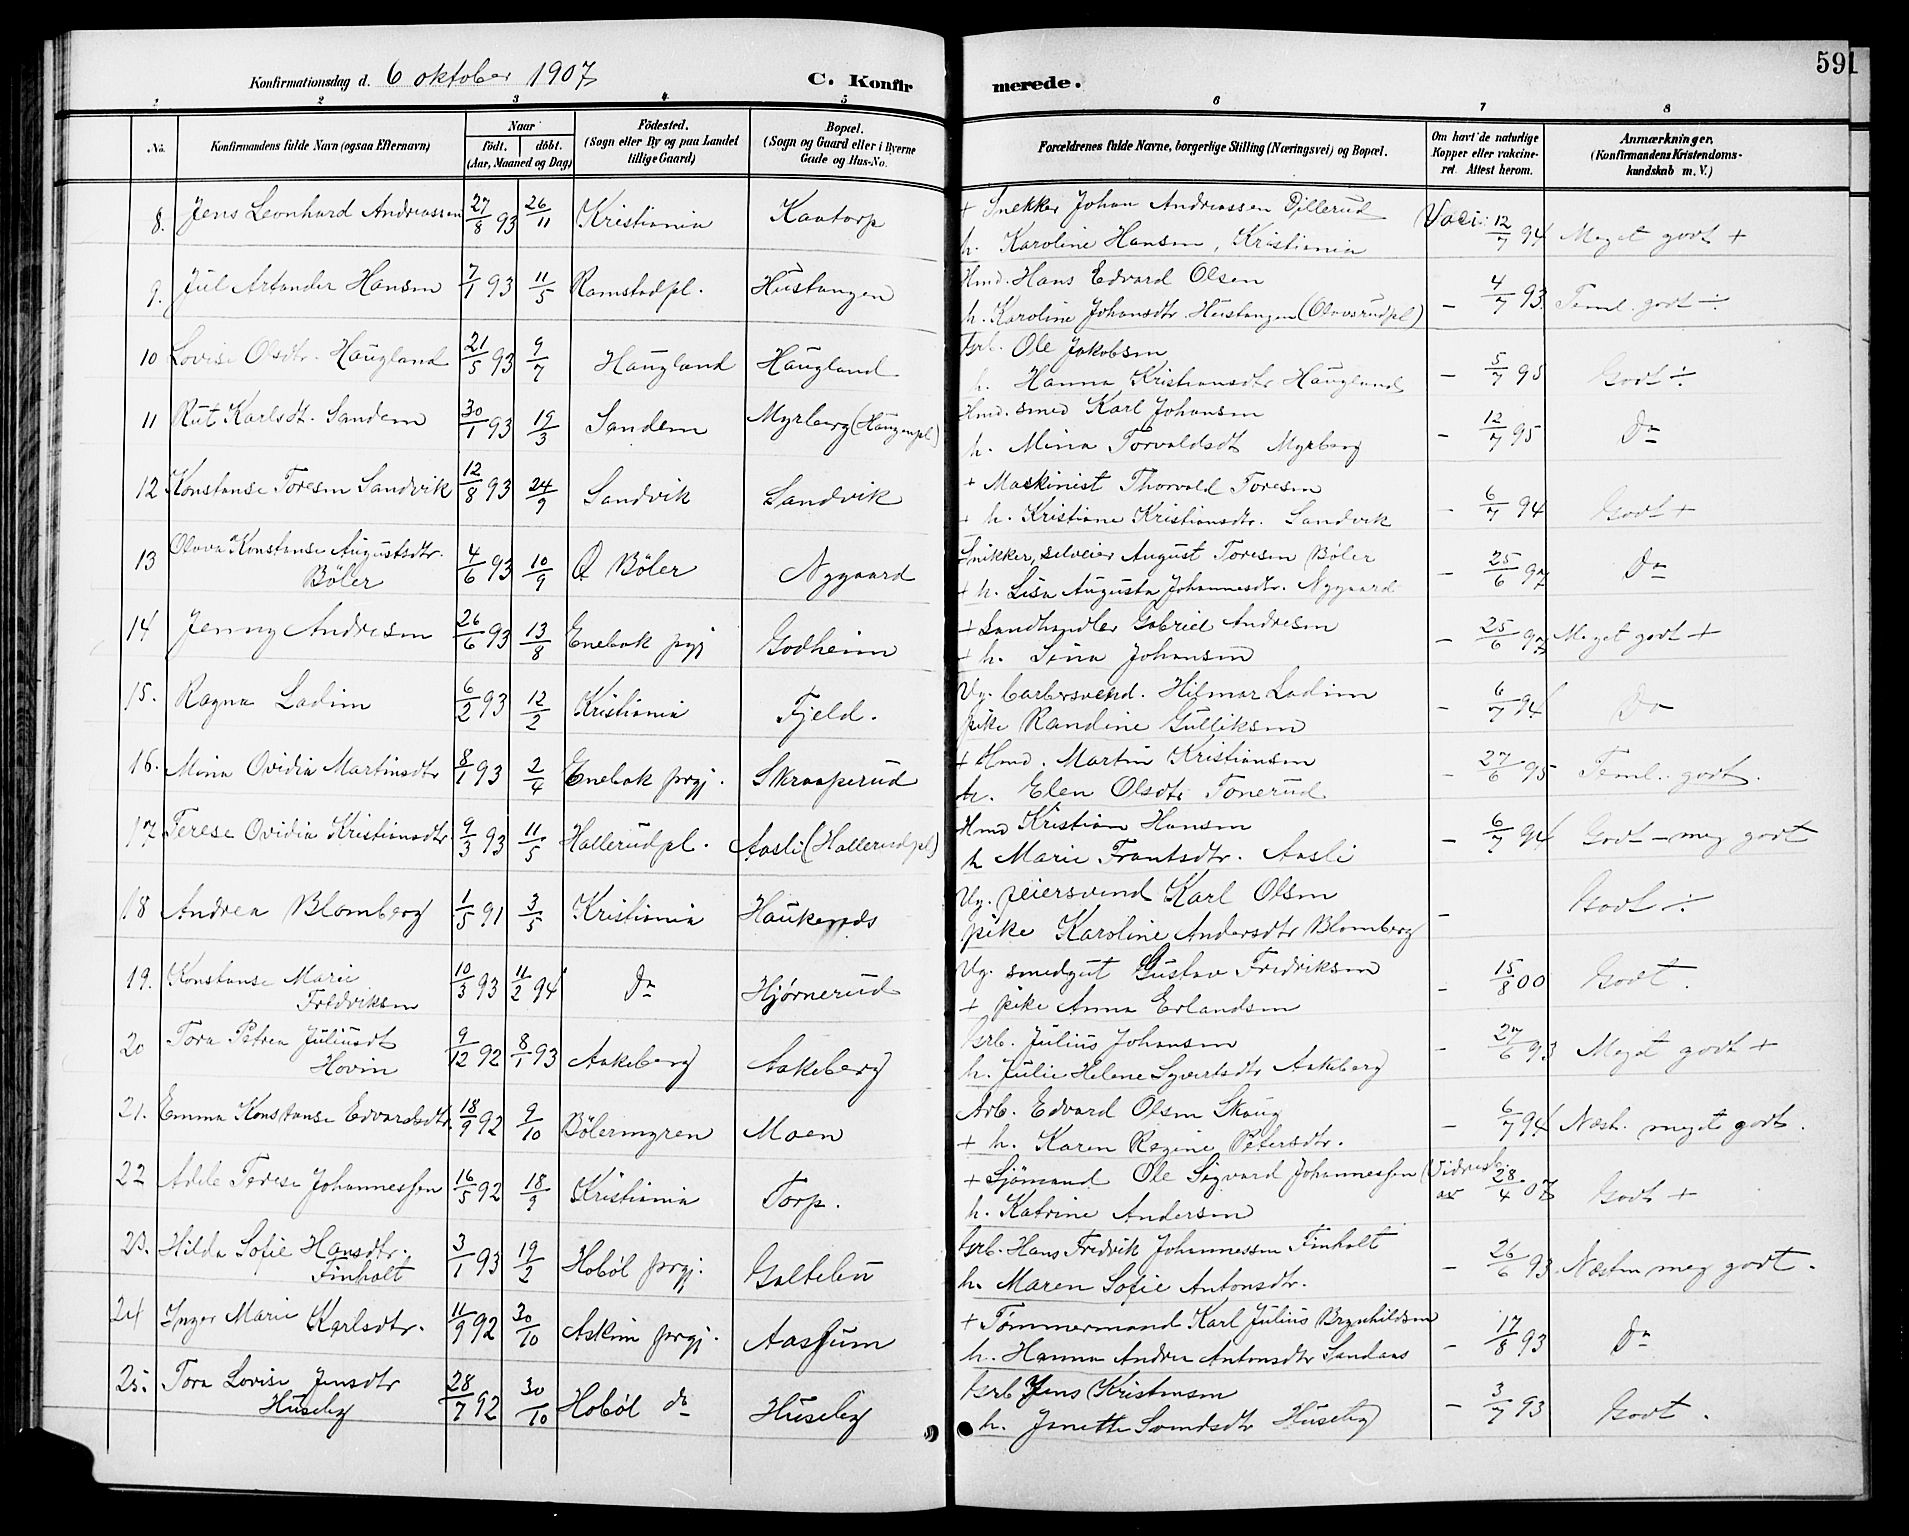 Konfirmationsdag d. 6 oktober 1907 C. Konfirmerede. 591
1 2 3 4 5 6 7 8
No. Konfirmandens fulde Navn (ogsaa Efternavn) Naar födt. döbt. (Aar, Maaned og Dag) Födested. (Sogn eller By og paa Landet tillige Gaard) Bopæl. (Sogn og Gaard eller i Byerne Gade og Hus-No. Forældrenes fulde Navne, borgerlige Stilling (Næringsvei) og Bopæl. Om havt de naturlige Kopper eller vakcineret. Attest herom. Anmærkninger, (Konfirmandens Kristendomskundskab m. V.)
8. Jens Leonhard Andreassen 27/8 93 26/11 Kristiania Kaatorp + Snekker Johan Andreassen Dillerud Vaci: 12/7 94 Meget godt +
h. Karoline Hansen, Kristiania
9. Jul Artander Hansen 7/1 93 11/5 Ramstadpl. Hustangen Hmd. Hans Edvard Olsen – 4/7 93. Teml. godt ÷
h. Karoline Johansdtr. Hustangen (Olavsrudpl)
10 Lovise Olsdtr. Haugland 21/5 93 9/7 Haugland Haugland Grb. Ole Jakobsen – 5/7 95 Godt ÷
h. Hanna Kristiansdtr Haugland
11 Rut Karlsdt. Sandem 30/1 93 19/3 Sandem Myrberg (Haugenpl) Hmd. smed Karl Johansen – 12/7 95 Do
h. Mina Torvaldsdt Myrberg
12 Konstanse Toresen Sandvik 12/8 93 24/9 Sandvik Sandvik + Maskinist Thorvald Toresen – 6/7 94 Godt +
+ h. Kristiane Kristiansdtr. Sandvik
13 Olava Konstanse Augustsdtr. Böler 4/6 93 10/9 Ø Böler Nygaard Snikker, selveier August Toresen Bøler – 25/6 97 Do
+ h. Lisa Augusta Johannesdtr. Nygaard
14 Jenny Andresen 26/6 93 13/8 Enebak prgj Godheim + Landhandler Gabriel Andresen – 25/6 97 Meget godt +
+ h. Lina Johansen
15. Ragna Ladim 6/2 93 12/2 Kristiania Fjeld. Ug. barbersvend. Hilmar Ladim – 6/7 94 Do
pike Randine Gulliksen
16. Mina Ovidia Martinsdtr 8/1 93 2/4 Enebak prgj. Skraaperud + Hmd. Martin Kristiansen – 27/6 95 Teml. godt.
h. Elen Olsdtr Tonerud
17 Terese Ovidia Kristiansdtr. 9/3 93 11/5 Hallerudpl. Aasli (Hallerudpl) Hmd Kristian Hansen – 6/7 94 Godt – meg godt
h Marie Frantsdtr. Aasli
18 Andrea Blomberg 1/5 91 3/5 Kristiania Haukenæs Ug. feiersvend Karl Olsen – Godt ÷
pike Karoline Andersdtr Blomberg
19. Konstanse Marie Fredriksen 10/3 93 11/2 94 Do Hjørnerud Ug. smedgut Gustav Fredriksen – 15/8 00 Godt.
+ pike Anna Erlandsen
20 Tora Petrea Juliusdt Hovin 9/12 92 8/1 93 Aakeberg Aakeberg Grb. Julius Johansen – 27/6 93 Meget godt +
h. Julie Helene Syvertsdtr Aakeberg
21. Emma Konstanse Edvardsdtr. 18/9 92 9/10 Bölermyren Moen Arb. Edvard Olsen Skaug – 6/7 94 Næst. meget godt.
+ h. Karen Regine Petersdtr.
22 Adele Terese Johannessen 16/5 92 18/9 Kristiania Torp. + Sjömand Ole Sigvard Johannessen 28/4 07 Godt +
h. Katrine Andersen
23. Hilda Sofie Hansdtr. Finholt 3/1 93 19/2 Hobøl prgj. Galtebu Grb. Hans Fredrik Johannessen Finholt – 26/6 93 Næsten meg godt.
h. Maren Sofie Antonsdtr.
24 Inger Marie Karlsdtr. 11/9 92 30/10 Askim prgj. Aassum + Tömmermand Karl Julius Brynhildsen – 17/8 93 Do
h. Hanna Andrea Antonsdtr Sandaas
25. Tora Lovise Jensdtr Huseby 28/7 92 30/10 Hobøl do Huseby Grb Jens Kristensen – 3/7 93 Godt.
h. Janette Svendsdtr Huseby